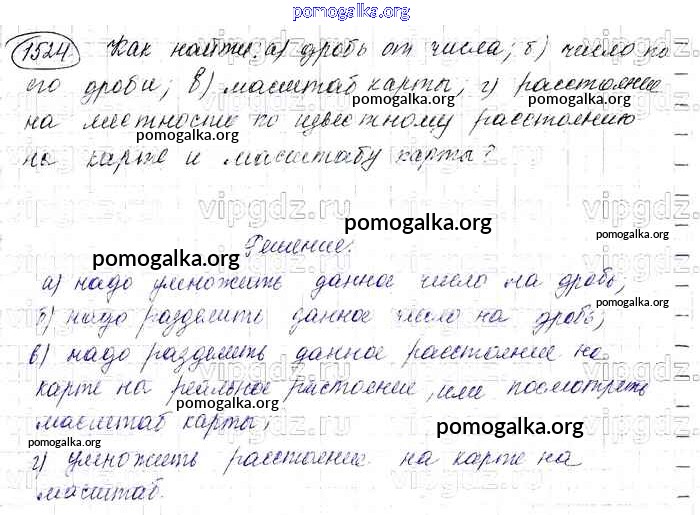 pomogalka.org
1524. Как найти: а) дробь от числа; б) число по
его дроби; в) масштаб карты, г) расстояние
pomogalka.org
pomogalka.org
на местности по известному расстоянию
pomogalka.org
на карте и масштабу карты?
vipgdz.ru
vipgdz.ru
pomogalka.org
Решение.
pomogalka.org
а) надо умножить данное число на дробь;
pomogalka.org
б) надо разделить данное число на дробь;
в) надо разделить данное расстояние на
vipgdz.ru
vipgdz.ru
карте на реальное растоение, или посмотреть
pomogalka.org
масштаб карты;
pomogalka.org
pomogalka.org
г) умножить расстояние на карте на
масштаб.
vipgdz.ru
vipgdz.ru